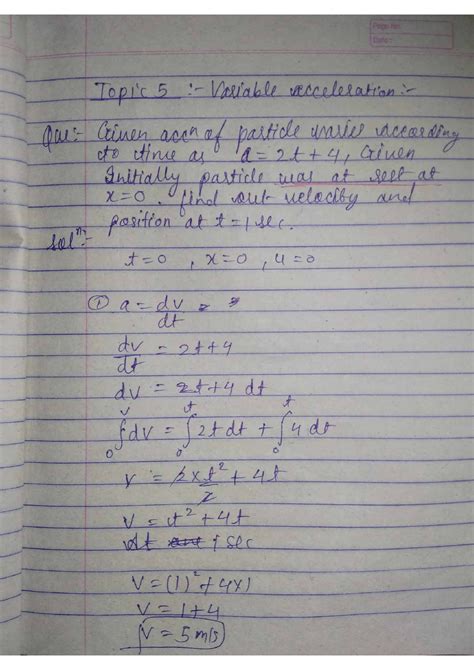 Page No.
Date:
Topic 5 :- Variable acceleration:-
Que:- Given accn of particle varies according
to time as a = 2t+4, Given
Initially particle was at rest at
x=0. find out velocity and
position at t=1 sec.
Solⁿ:-
t=0 , x=0 , u=0
① a = dv/dt
dv/dt = 2t+4
dv = 2t+4 dt
∫₀ᵛ dv = ∫₀ᵗ 2t dt + ∫₀ᵗ 4 dt
v = 2×t²/2 + 4t
v = t²+4t
At 1 sec
V = (1)²+4×1
V = 1+4
V = 5 m/s